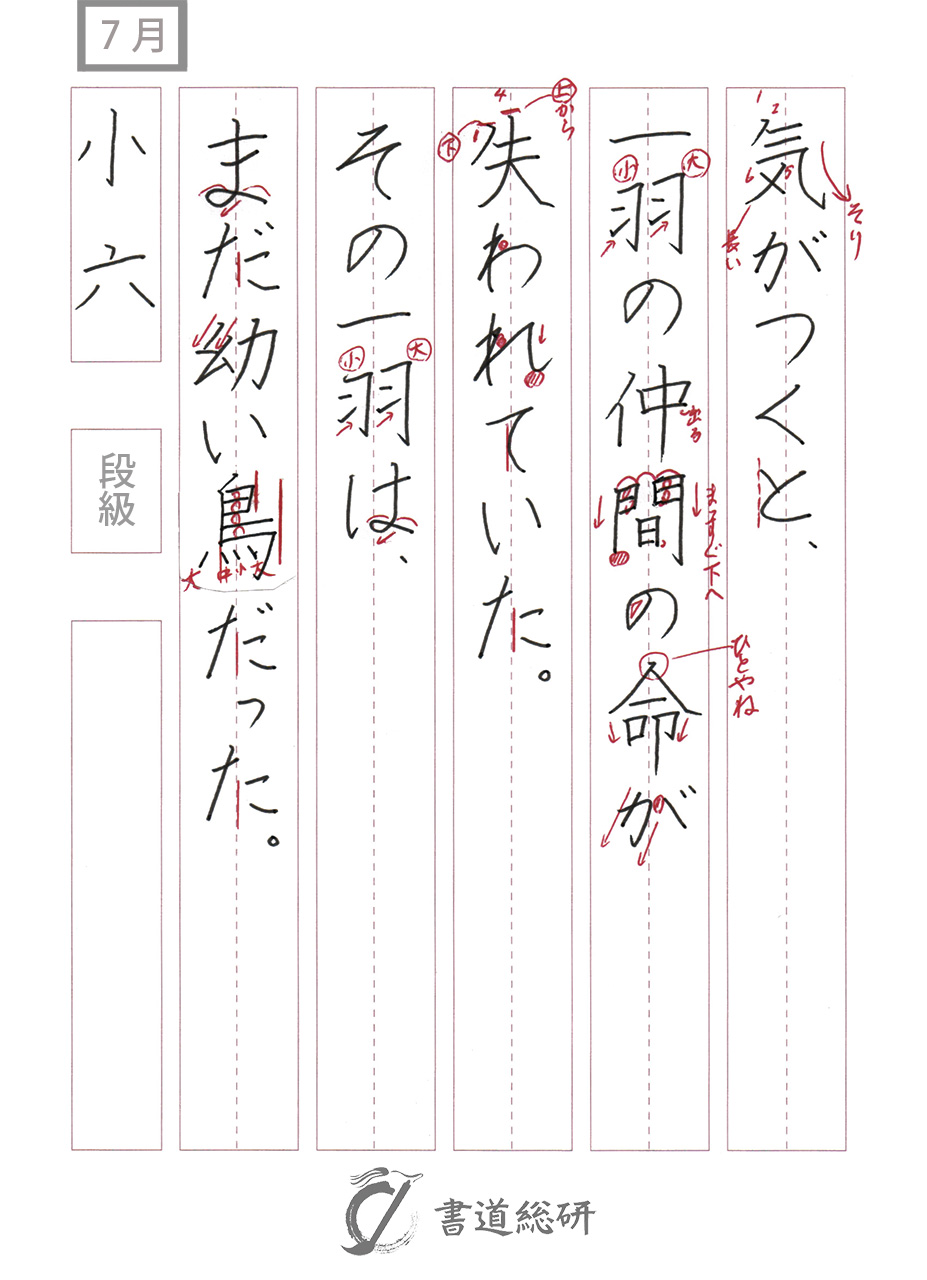 7月
気がつくと、
一羽の仲間の命が
失われていた。
その一羽は、
まだ幼い鳥だった。
小六
段級
1
2
6
5
そり
長い
小
大
出る
まっすぐ下へ
ひとやね
4
上から
下
1
小
大
大
中
小
大
書道総研